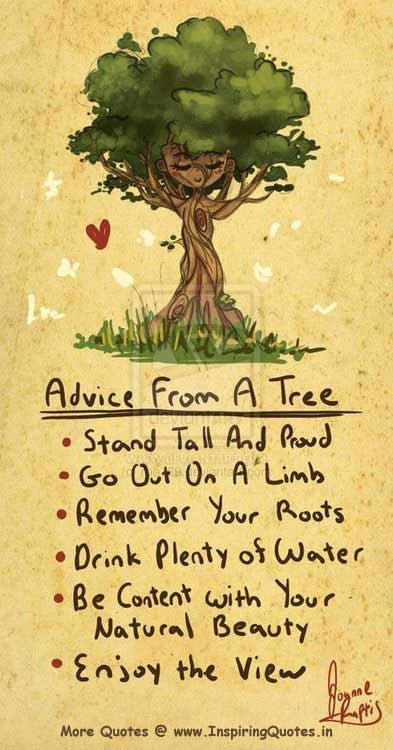 Advice From A Tree
• Stand Tall And Proud
• Go Out On A Limb
• Remember Your Roots
• Drink Plenty of Water
• Be Content with Your
Natural Beauty
• Enjoy the View
Joanne
Kraptis
More Quotes @ www.InspiringQuotes.in